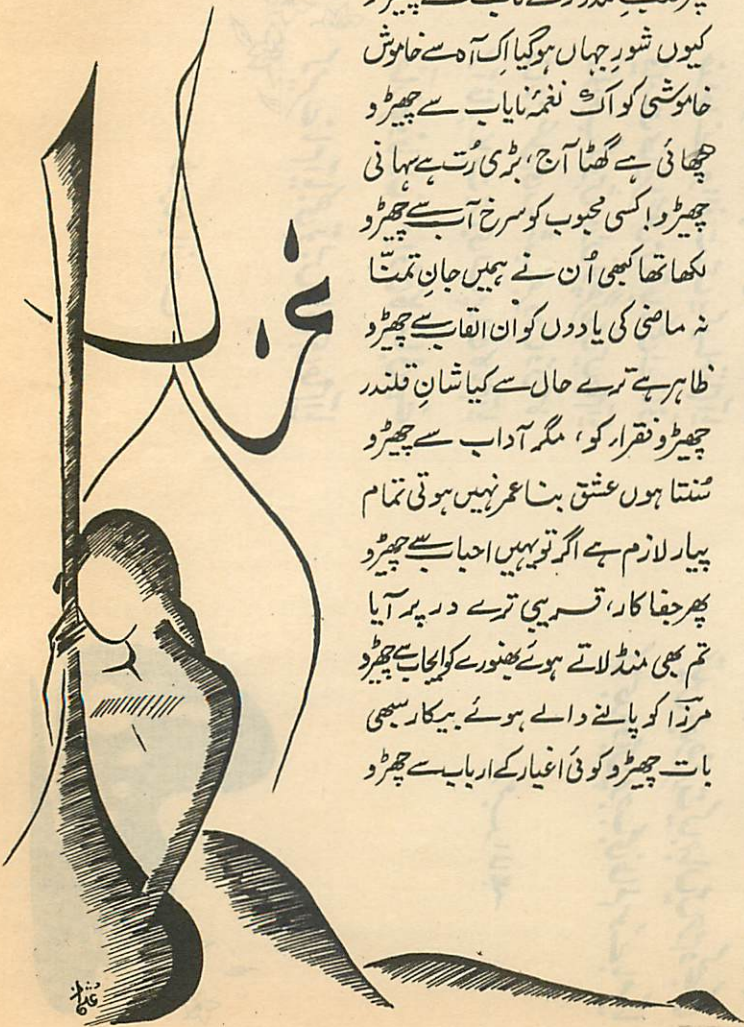 کیوں شورِ جہاں ہوگیا اِک آہ سے خاموش
خاموشی کو اک نغمۂ نایاب سے چھیڑو
چھائی ہے گھٹا آج، بڑی رُت ہے سہانی
چھیڑو! کسی محبوب کو سرخ آب سے چھیڑو
لکھا تھا کبھی اُن نے ہمیں جانِ تمنّا
نہ ماضی کی یادوں کو ان القاب سے چھیڑو
ظاہر ہے ترے حال سے کیا شانِ قلندر
چھیڑو فقرار کو، مگر آداب سے چھیڑو
سُنتا ہوں عشق بنا عمر نہیں ہوتی تمام
پیار لازم ہے اگر تو یہیں احباب سے چھیڑو
پھر جفا کار، قریبی ترے در پر آیا
تم بھی منڈلاتے ہوئے بھنورے کو ایجاب سے چھیڑو
مرزا کو پالنے والے ہوئے بیکار سبھی
بات چھیڑو کوئی اغیار کے ارباب سے چھڑو
غزل